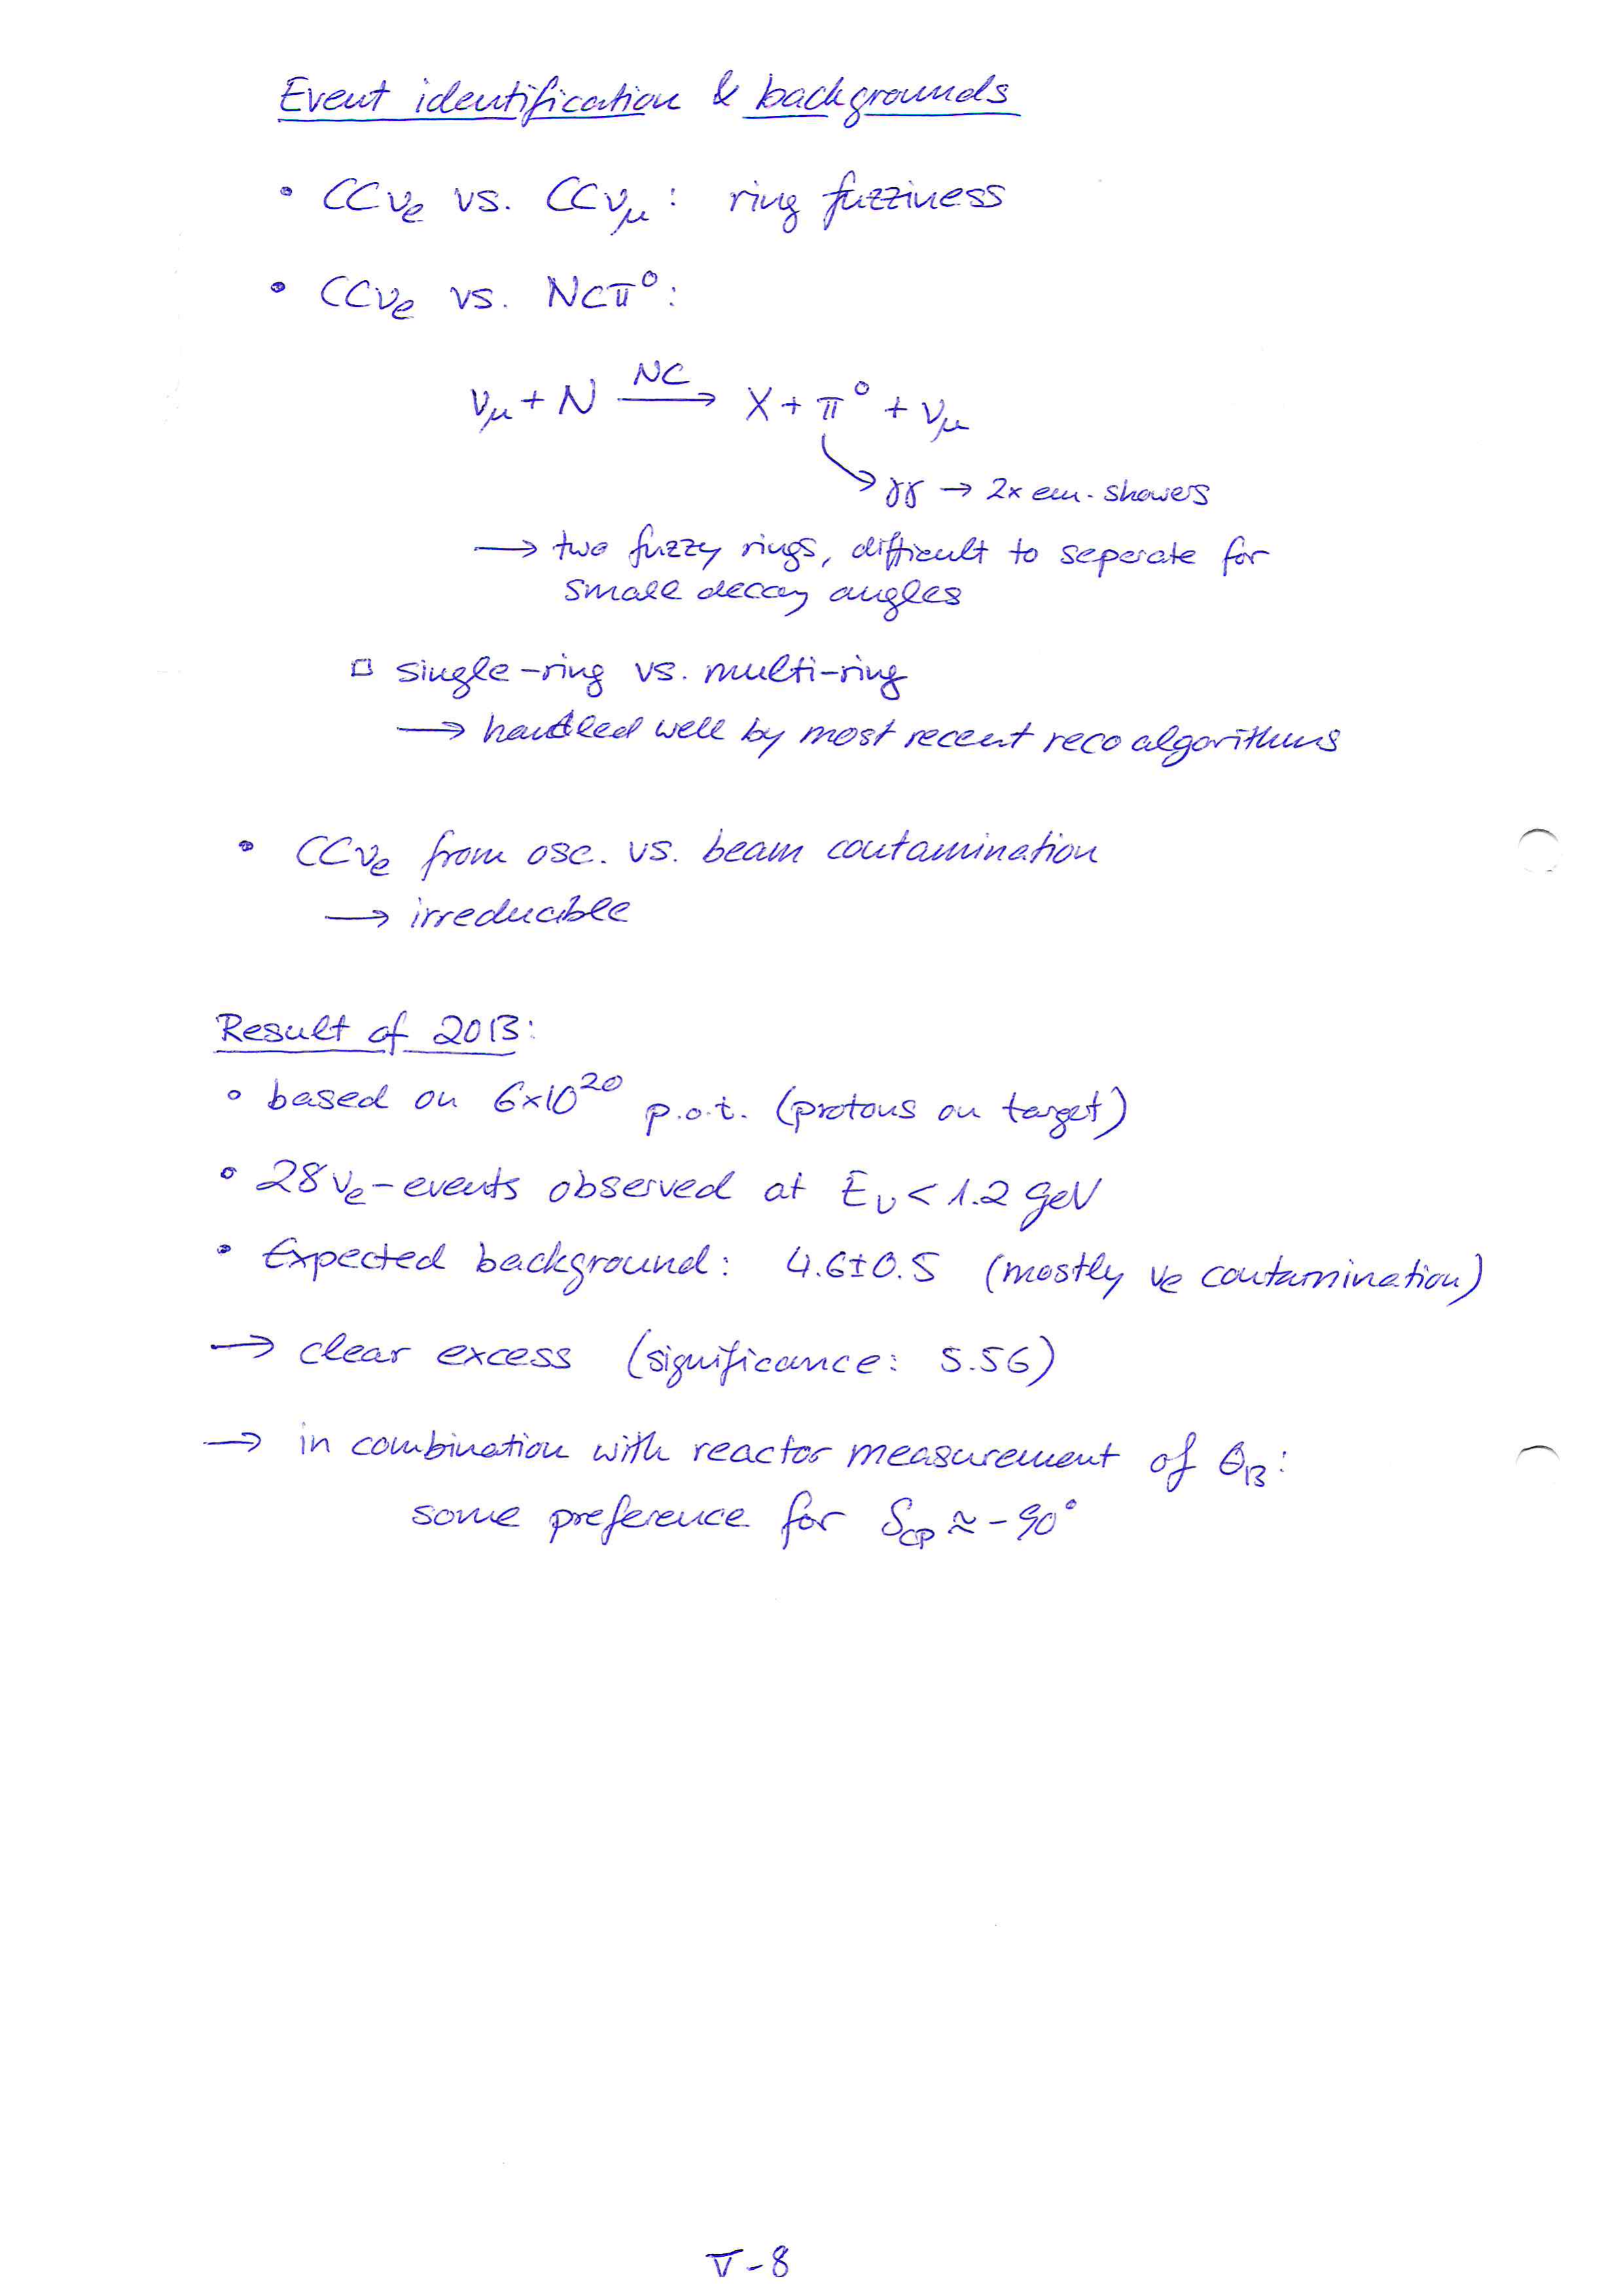 Event identification & backgrounds
• CCνe vs. CCνμ: ring fuzziness
• CCνe vs. NCπ⁰:
νμ + N —NC→ X + π⁰ + νμ
↳ γγ → 2x em. showers
→ two fuzzy rings, difficult to seperate for
small decay angles
□ single-ring vs. multi-ring
→ handled well by most recent reco algorithms
• CCνe from osc. vs. beam contamination
→ irreducible
Result of 2013:
• based on 6×10²⁰ p.o.t. (protons on target)
• 28 νe-events observed at Eν < 1.2 GeV
• Expected background: 4.6±0.5 (mostly νe contamination)
→ clear excess (significance: 5.5σ)
→ in combination with reactor measurement of θ₁₃:
some preference for δCP ≈ -90°
V-8